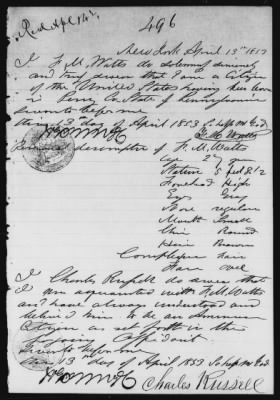 Recd Apl 14
496
New York April 13th 1853
I F. M. Watts do solemnly sincerely
and truly swear that I am a Citizen
of the United States having been born
in Perry Co. State of Pennsylvania
Sworn to before me
this 13th day of April 1853 So help me God
F M Watts
Personal description of F. M. Watts
Age 27 years
Stature 5 feet 8 1/2
Forehead High
Eyes Gray
Nose regular
Mouth Small
Chin Round
Hair Brown
Complexion fair
Face oval
I Charles Russell do swear that I
am acquainted with F. M. Watts
and have always understood and
believed him to be an American
Citizen as set forth in the
foregoing Affidavit
Sworn to before me
this 13 day of April 1853 So help me God
Charles Russell